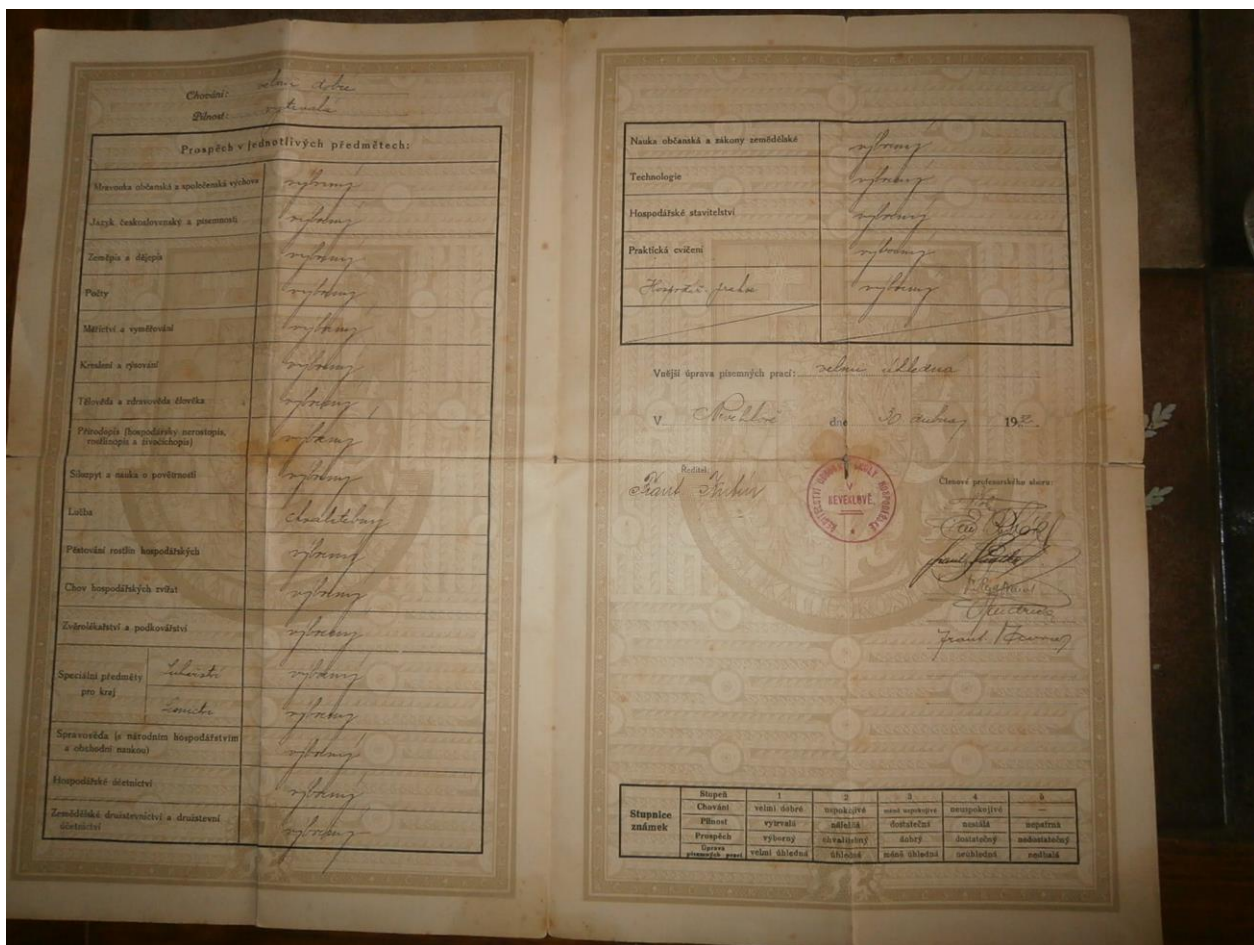 Chování: velmi dobré
Pilnost: vytrvalá
Prospěch v jednotlivých předmětech:
Mravouka občanská a společenská výchova výborný
Jazyk československý a písemnosti výborný
Zeměpis a dějepis výborný
Počty výborný
Měřictví a vyměřování výborný
Kreslení a rýsování výborný
Tělověda a zdravověda člověka výborný
Přírodopis (hospodářský nerostopis,
rostlinopis a živočichopis) výborný
Silozpyt a nauka o povětrnosti výborný
Lučba chvalitebný
Pěstování rostlin hospodářských výborný
Chov hospodářských zvířat výborný
Zvěrolékařství a podkovářství výborný
Speciální předměty
pro kraj
výborný
výborný
Spravověda (s národním hospodářstvím
a obchodní naukou) výborný
Hospodářské účetnictví výborný
Zemědělské družstevnictví a družstevní
účetnictví výborný
Nauka občanská a zákony zemědělské výborný
Technologie výborný
Hospodářské stavitelství výborný
Praktická cvičení výborný
Hospodář. prakse výborný
Vnější úprava písemných prací: velmi úhledná
V dne 30 dubna 192
Ředitel:
Frant.
NEVEKLOVĚ
Členové profesorského sboru:
Frant.
Stupnice
známek
Stupeň 1 2 3 4 5
Chování velmi dobré uspokojivé méně uspokojivé neuspokojivé —
Pilnost vytrvalá náležitá dostatečná nestálá nepatrná
Prospěch výborný chvalitebný dobrý dostatečný nedostatečný
Úprava
písemných prací velmi úhledná úhledná méně úhledná neúhledná nedbalá